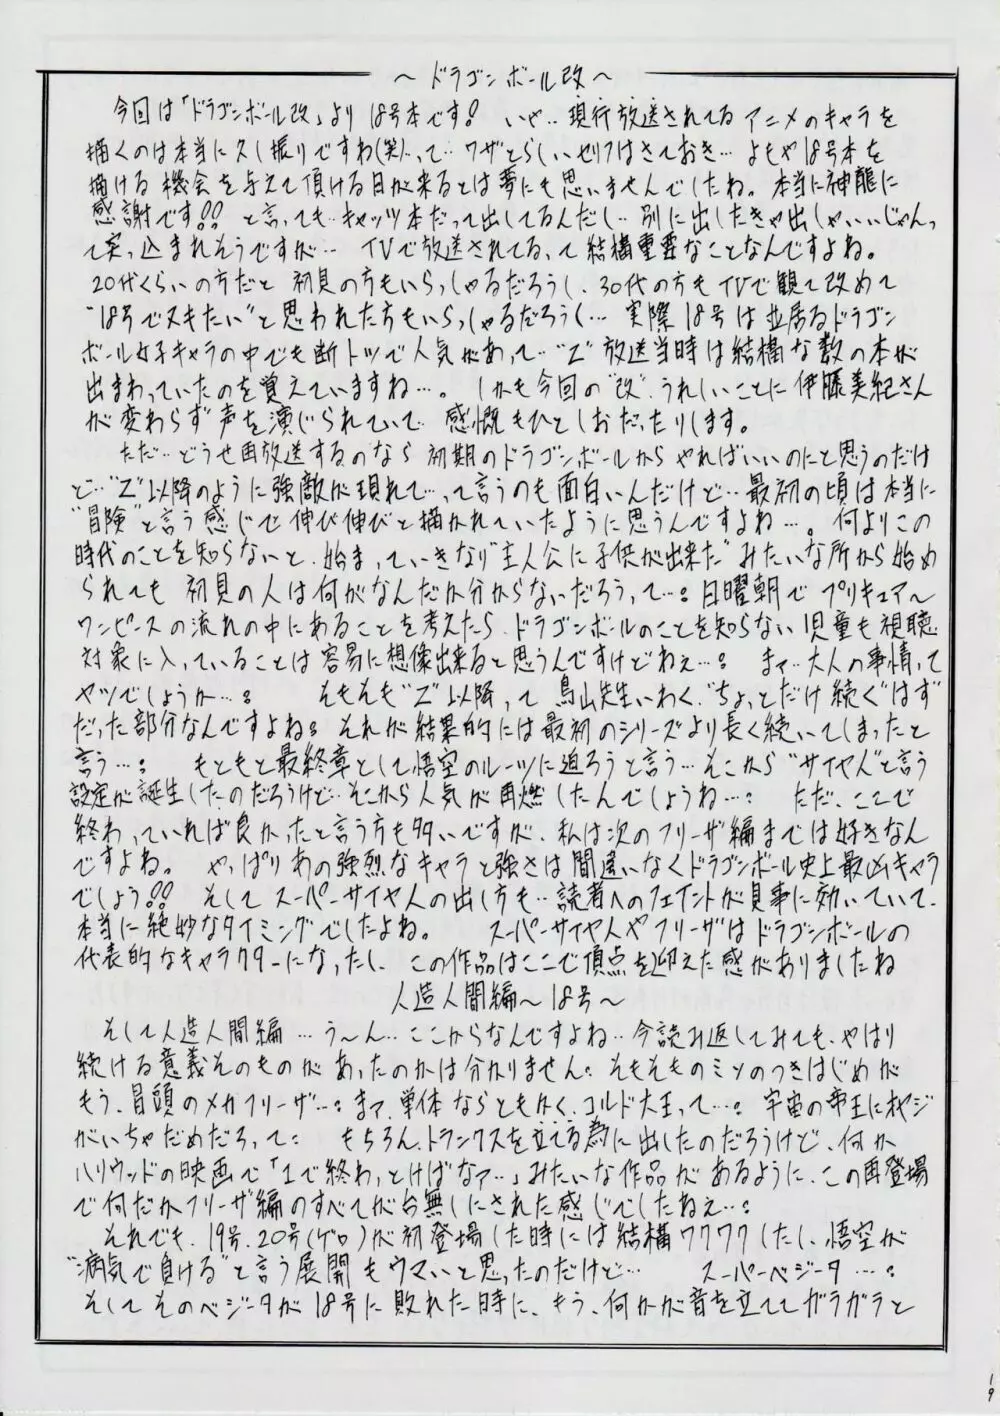 ～ドラゴンボール改～
今回は「ドラゴンボール改」より18号本です! いや‥現行放送されてるアニメのキャラを
描くのは本当に久し振りですわ(笑)…って‥ワザとらしいセリフはさておき…よもや18号本を
描ける機会を与えて頂ける日が来るとは夢にも思いませんでしたね。本当に神龍に
感謝です!! と言っても‥キャッツ本だって出してるんだし‥別に出したきゃ出しゃいいじゃんっ
て突っ込まれそうですが… TVで放送されてる、って結構重要なことなんですよね。
20代くらいの方だと初見の方もいらっしゃるだろうし、30代の方もTVで観て改めて
"18号でヌキたい"と思われた方もいらっしゃるだろうし… 実際18号は並居るドラゴン
ボール女子キャラの中でも断トツで人気があって‥"Z"放送当時は結構な数の本が
出まわっていたのを覚えていますね…。しかも今回の"改"、うれしいことに伊藤美紀さん
が変わらず声を演じられていて、感慨もひとしおだったりします。
ただ‥どうせ再放送するのなら初期のドラゴンボールからやればいいのにと思うのだけ
ど‥"Z"以降のように強敵が現れて…って言うのも面白いんだけど‥最初の頃は本当に
"冒険"と言う感じで伸び伸びと描かれていたように思うんですよね…。何よりこの
時代のことを知らないと、始まっていきなり"主人公に子供が出来た"みたいな所から始め
られても初見の人は何がなんだか分からないだろうって…。日曜朝でプリキュア～
ワンピースの流れの中にあることを考えたら、ドラゴンボールのことを知らない児童も視聴
対象に入っていることは容易に想像出来ると思うんですけどねぇ…。まァ‥大人の事情って
ヤツでしょうか…。 そもそも"Z"以降って鳥山先生いわく、"ちょっとだけ続く"はず"
だった部分なんですよね。それが結果的には最初のシリーズより長く続いてしまったと
言う…。 もともと最終章として悟空のルーツに迫ろうと言う…そこから"サイヤ人"と言う
設定が誕生したのだろうけど‥そこから人気が再燃したんでしょうね…。 ただ、ここで
終わっていれば良かったと言う方も多いですが、私は次のフリーザ編までは好きなん
ですよね。 やっぱりあの強烈なキャラと強さは間違いなくドラゴンボール史上最凶キャラ
でしょう!! そしてスーパーサイヤ人の出し方も‥読者へのフェイントが見事に効いていて、
本当に絶妙なタイミングでしたよね。 スーパーサイヤ人やフリーザはドラゴンボールの
代表的なキャラクターになったし、この作品はここで頂点を迎えた感がありましたね
人造人間編～18号～
そして人造人間編…う～ん‥ここからなんですよね‥今読み返してみても、やはり
続ける意義そのものがあったのかは分かりません。そもそものミソのつきはじめが
もう、冒頭のメカフリーザ…。まァ、単体ならともかく、コルド大王って…。宇宙の帝王にオヤジ
がいちゃだめだろって。 もちろん、トランクスを立てる為に出したのだろうけど、何か
ハリウッドの映画で「1で終わっとけばなァ…」みたいな作品があるように、この再登場
で何だかフリーザ編のすべてが台無しにされた感じでしたねぇ…。
それでも、19号、20号(ゲロ)が初登場した時には結構ワクワクしたし、悟空が
"病気で負ける"と言う展開もウマいと思ったのだけど… スーパーベジータ…。
そしてそのベジータが18号に敗れた時に、もう、何かが音を立ててガラガラと
19